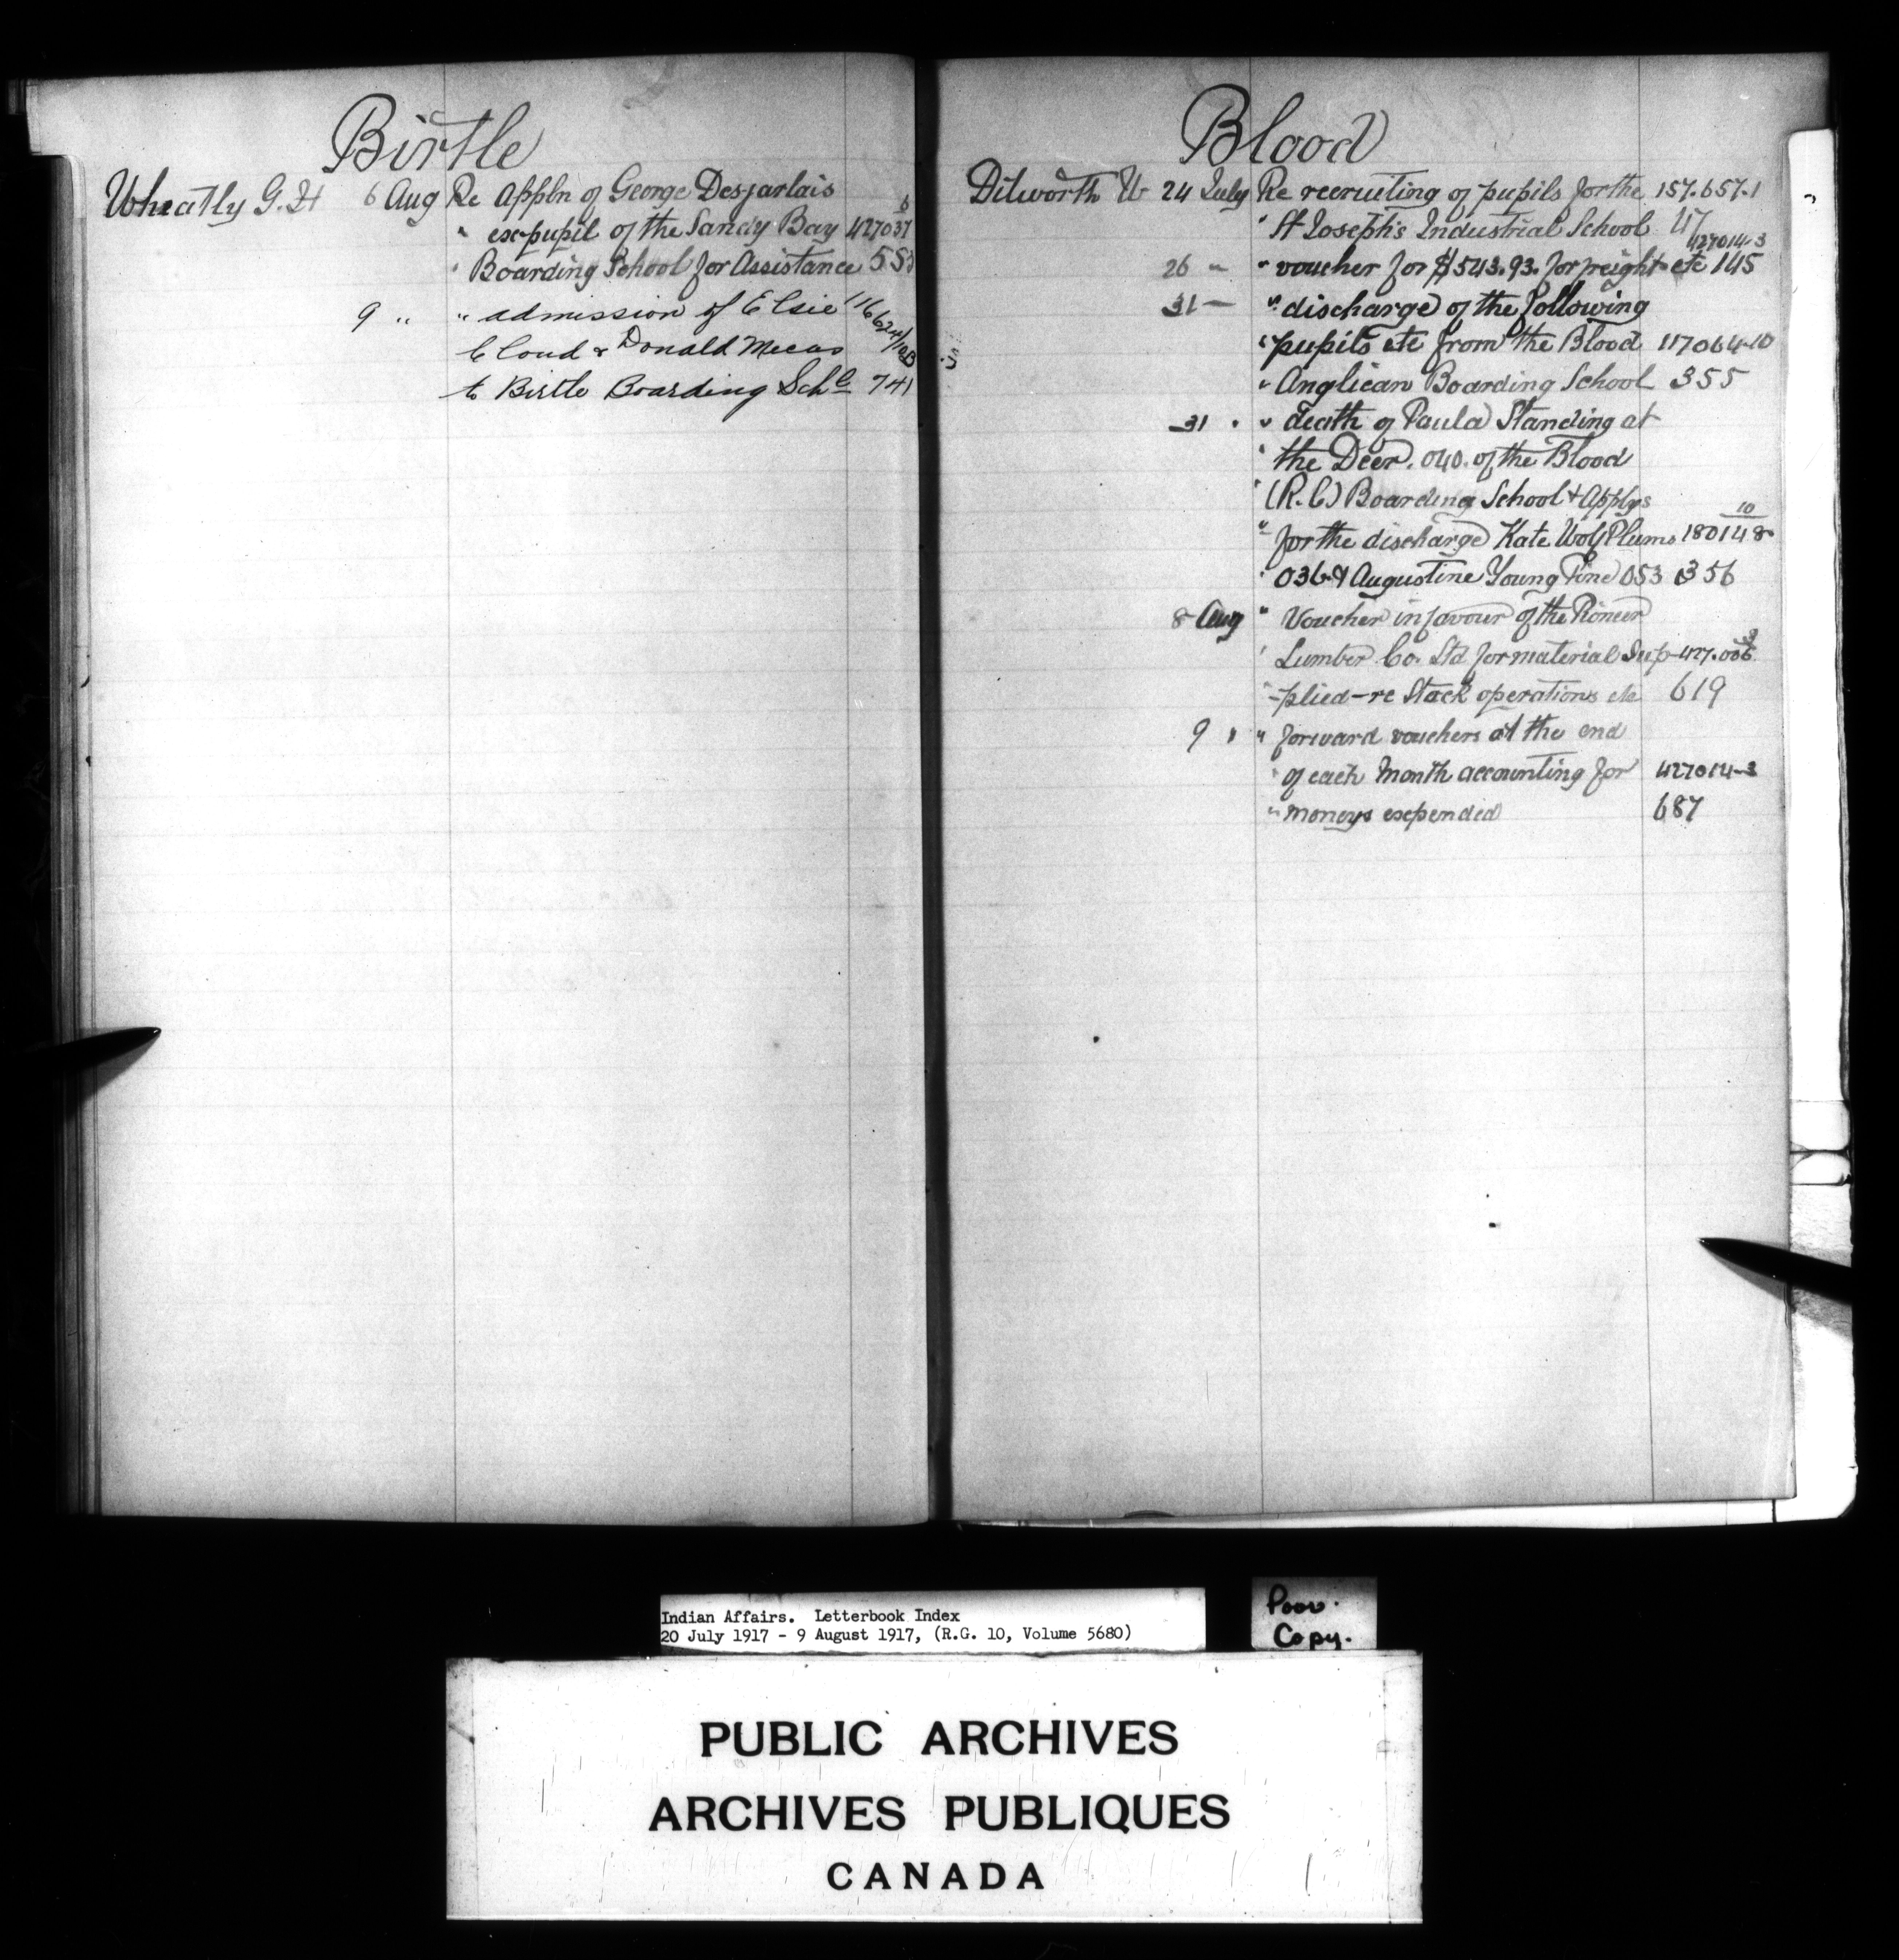 Birtle
Wheatly G. H 6 Aug Re Appln of George Desjarlais 6
" ex-pupil of the Sandy Bay 427037
" Boarding School for Assistance 553
9 " " admission of Elsie 116624/10B
Cloud & Donald Mecas
to Birtle Boarding Schl 741
Blood
Dilworth W 24 July Re recruiting of pupils for the 157.657.1
" St Joseph's Industrial School 47
26 " " voucher for $543.93. for freight etc 427014-3 145
31 — " discharge of the following
" pupils etc from the Blood 117064-10
" Anglican Boarding School 355
31 " " death of Paula Standing at
" the Deer. 040. of the Blood
" (R.C) Boarding School & Applys 10
" for the discharge Kate Wolf Plume 180148
" 036 & Augustine Young Pine 053 356
8 Aug " Voucher in favour of the Pioneer
" Lumber Co. Ltd for material Sup- 427.006
" -plied - re Stock operations etc 619
9 " " forward vouchers at the end
" of each Month accounting for 427014-3
" moneys expended 687
Indian Affairs. Letterbook Index
20 July 1917 - 9 August 1917, (R.G. 10, Volume 5680)
Poor.
Copy.
PUBLIC ARCHIVES
ARCHIVES PUBLIQUES
CANADA